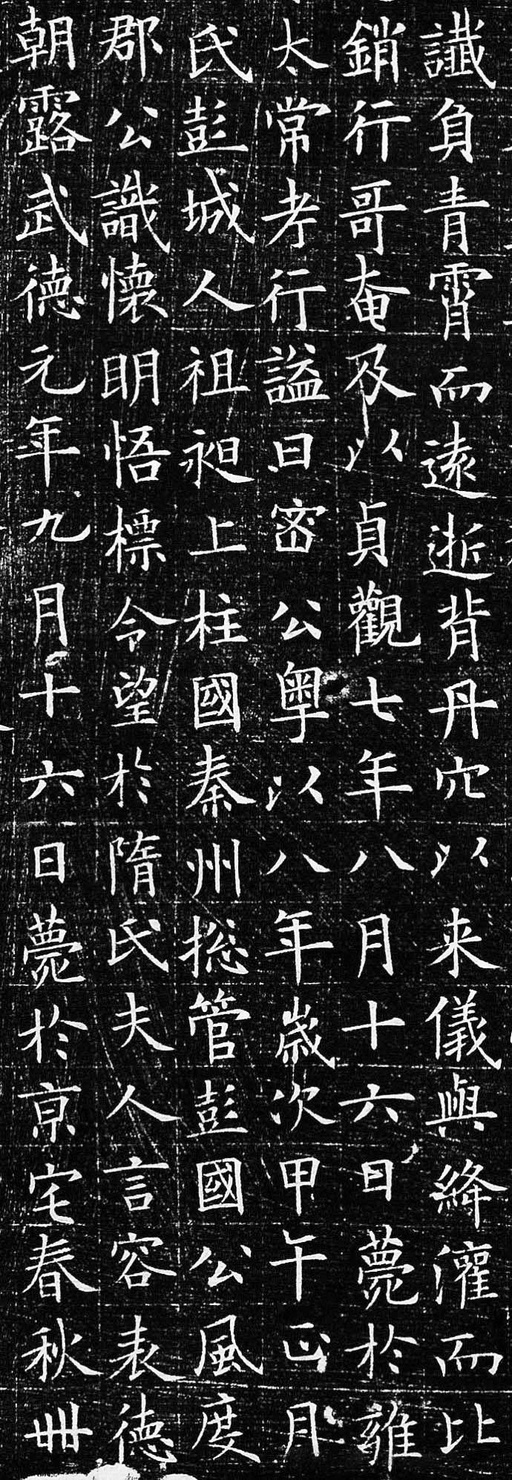 讖負青霄而遠逝背丹穴以来儀與絳灌而比
銷行哥奄及以貞觀七年八月十六日薨於雍
太常考行謚曰密公粤以八年歳次甲午正月
氏彭城人祖昶上柱國秦州捴管彭國公風度
郡公識懷明悟標令望於隋氏夫人言容表徳
朝露武徳元年九月十六日薨於京宅春秋卌